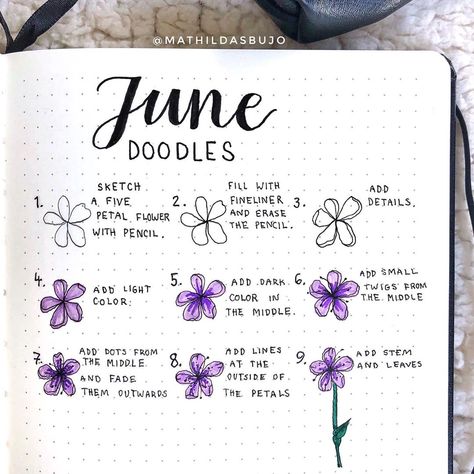 @MATHILDASBUJO
June
DOODLES
1. SKETCH
A FIVE
PETAL FLOWER
WITH PENCIL.
2. FILL WITH
FINELINER
AND ERASE
THE PENCIL.
3. ADD
DETAILS.
4. ADD LIGHT
COLOR.
5. ADD DARK
COLOR IN
THE MIDDLE.
6. ADD SMALL
TWIGS FROM
THE MIDDLE
7. ADD DOTS FROM
THE MIDDLE
AND FADE
THEM OUTWARDS
8. ADD LINES
AT THE
OUTSIDE OF
THE PETALS
9. ADD STEM
AND LEAVES